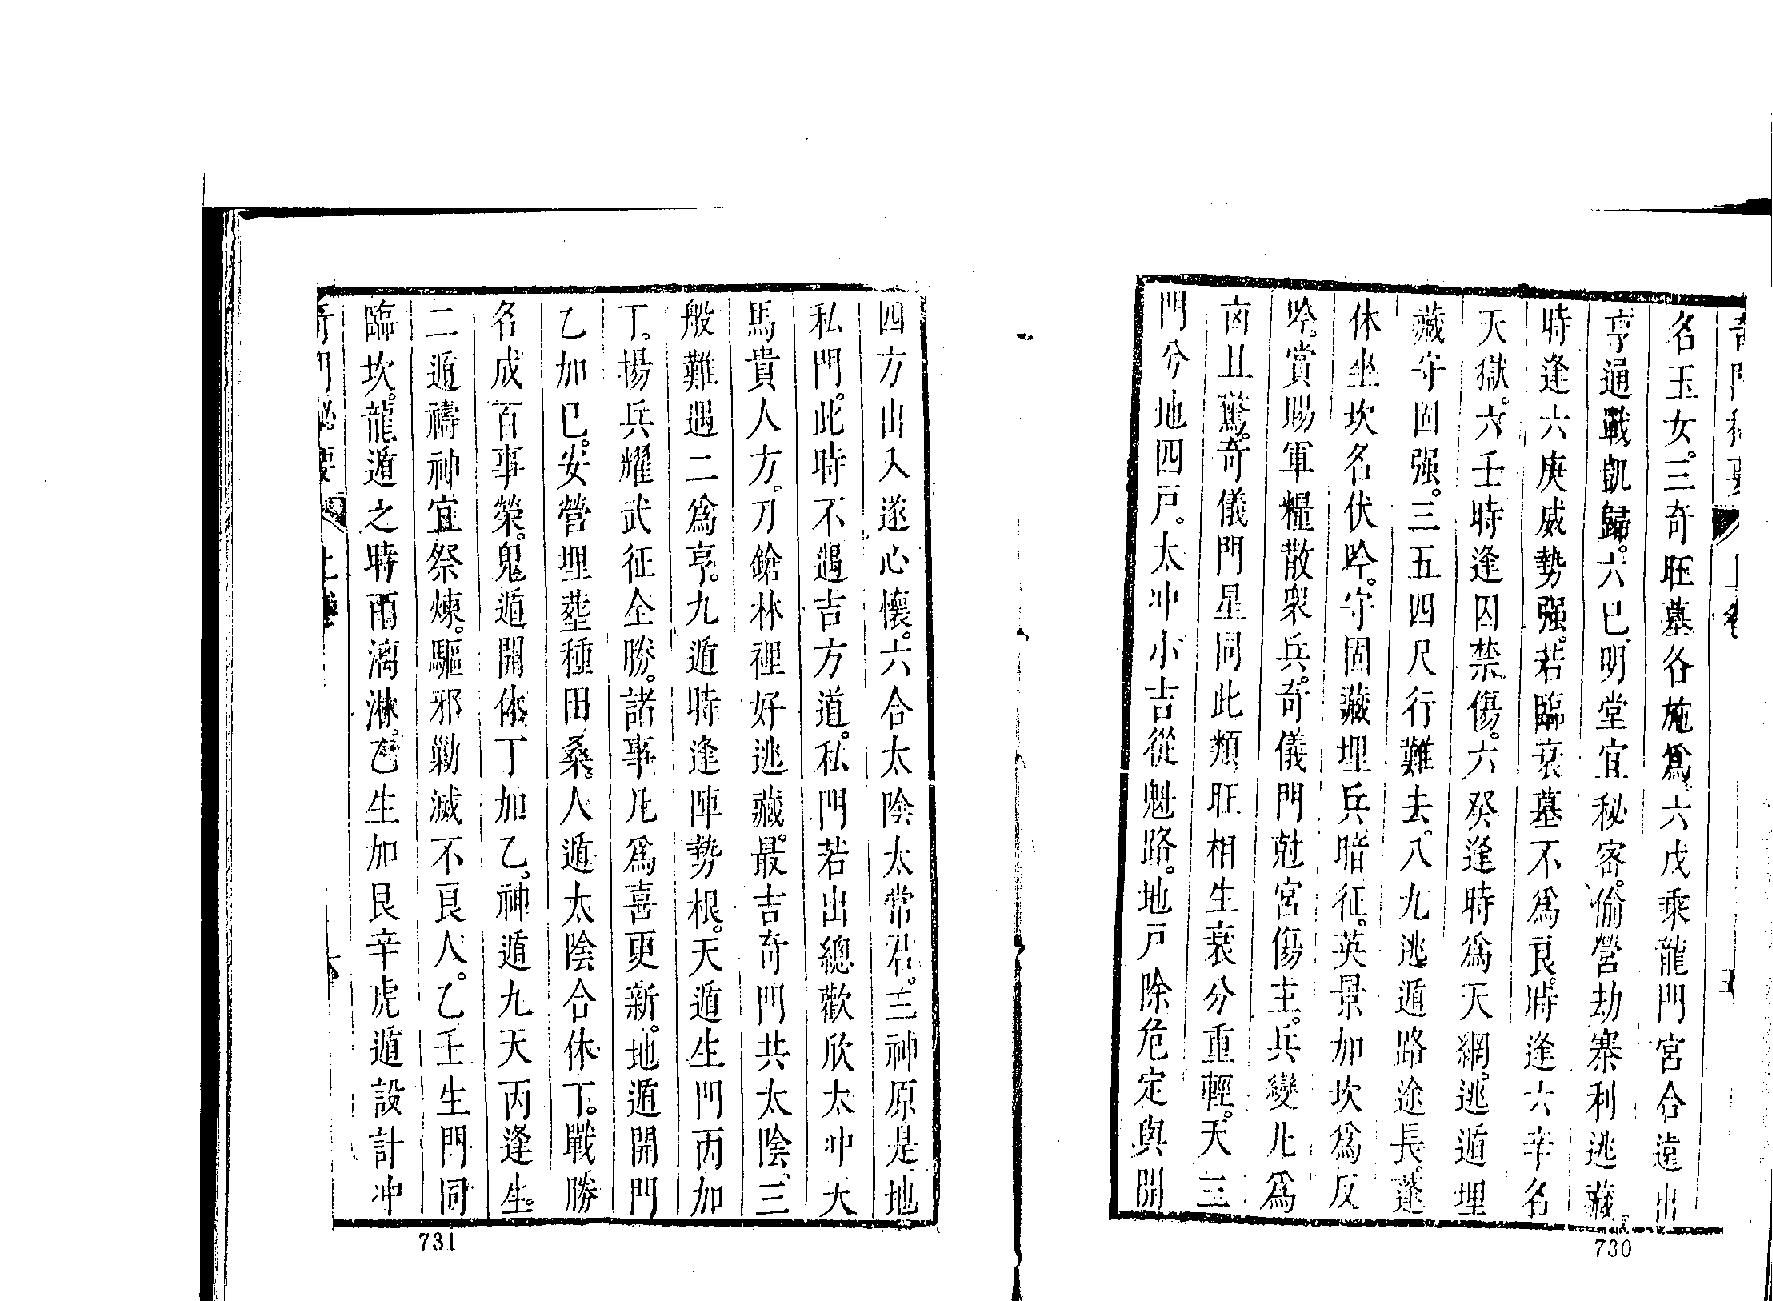 名玉女。三奇旺墓各施爲。六戊乘龍門宮合遠出
亨通戰凱歸。六巳明堂宜秘密。偷營劫寨利逃藏
時逢六庚威勢强。若臨衰墓不爲良。時逢六辛名
天獄。六壬時逢囚禁傷。六癸逢時爲天網。逃遁埋
藏守固强。三五四尺行難去。八九逃遁路途長。蓬
休坐坎名伏吟。守固藏埋兵暗征。英景加坎爲反
吟。賞賜軍糧散衆兵。奇儀門尅宮傷主。兵變凡爲
凶且驚。奇儀門星同此類旺相生衰分重輕。天三
門分地四戸。太冲小吉從魁路。地戸除危定與開
730
四方出入遂心懷。六合太陰太常君。三神原是地
私門。此時不遇吉方道。私門若出總歡欣太冲天
馬貴人方。刀鎗林裡好逃藏。最吉奇門共太陰。三
般難遇二爲亨。九遁時逢陣勢根。天遁生門丙加
丁。揚兵耀武征仝勝。諸事凡爲喜更新。地遁開門
乙加巳。安營埋塟種田桑。人遁太陰合休丁。戰勝
名成百事榮。鬼遁開休丁加乙。神遁九天丙逢生。
二遁禱神宜祭煉。驅邪勦滅不良人。乙壬生門同
臨坎。龍遁之時雨漓淋。乙生加艮辛虎遁設計冲
奇門秘要
上卷
731